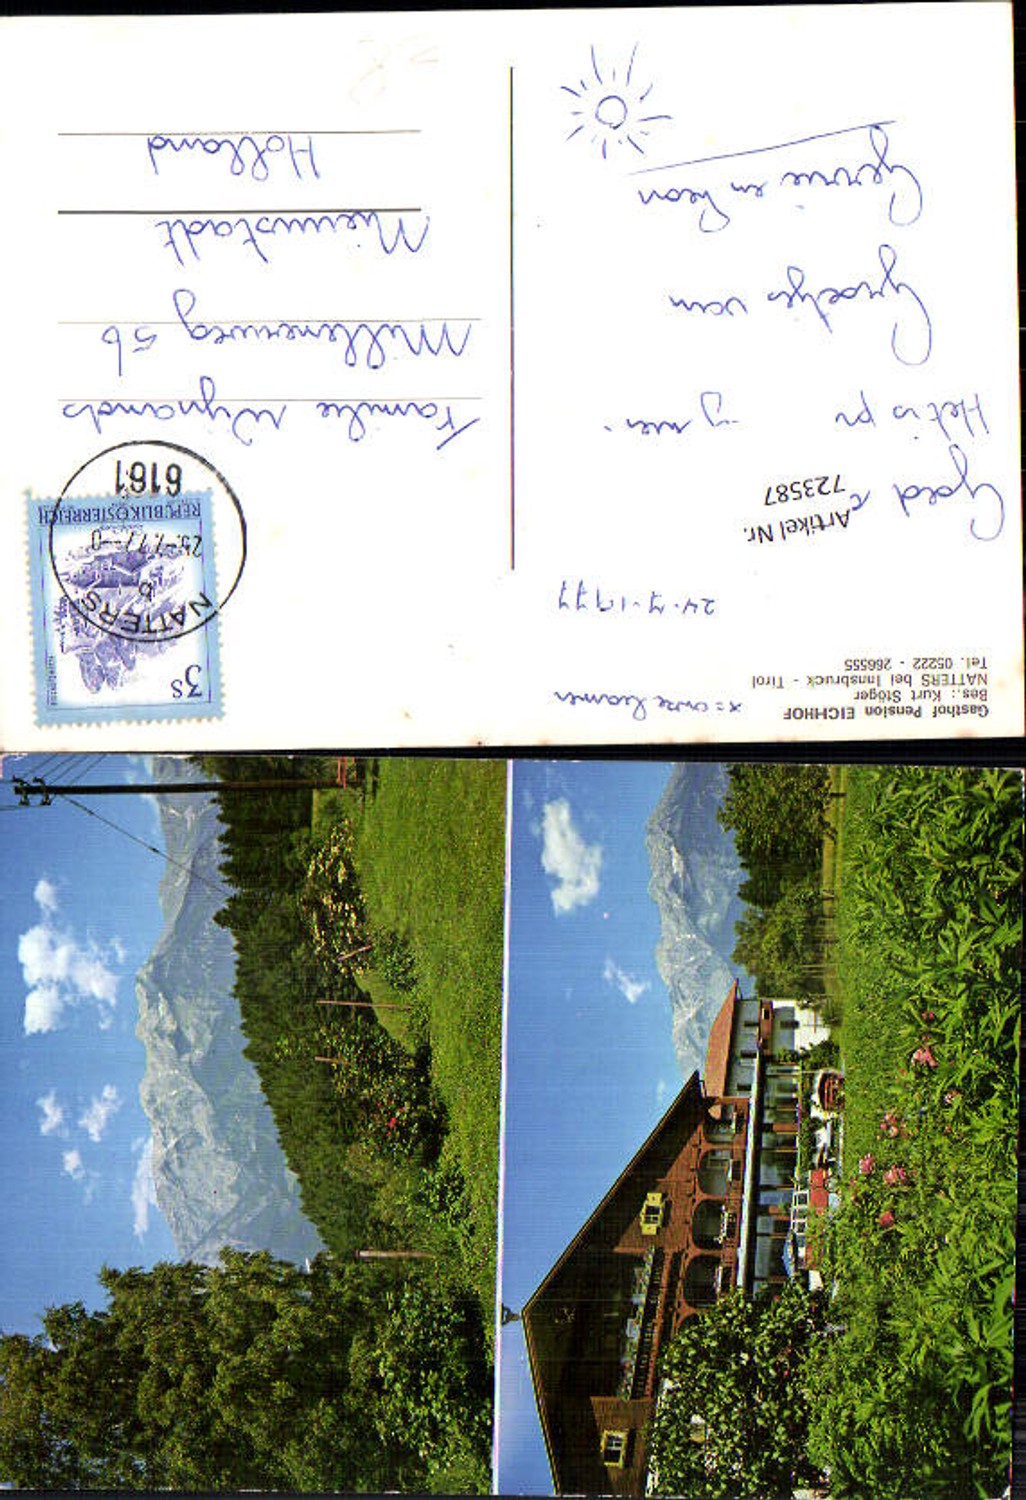 Gasthof Pension EICHHOF
Bes.: Kurt Stöger
NATTERS bei Innsbruck - Tirol
Tel. 05222 - 266555
x = onze kamer
24-7-1977
Artikel Nr.
723587
Goed
Het is
Groetjes van
Gerrie en Leon
3S
REPUBLIK ÖSTERREICH
NATTERS
b
25.-7.77-0
6161
Familie Wijnands
Millenerweg 56
Nieuwstadt
Holland